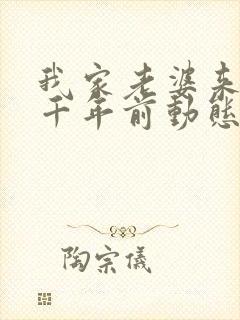 我家老婆来
千年前動態
陶宗儀